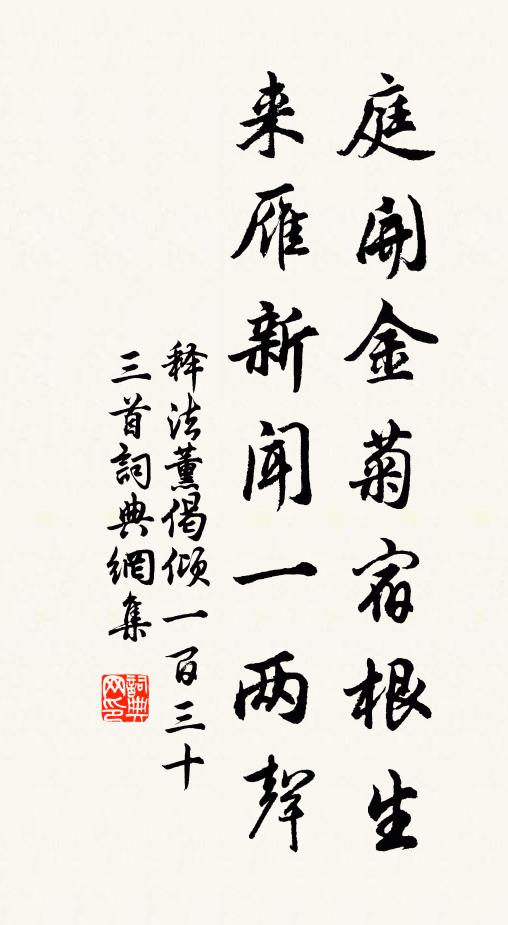 庭開金菊宿根生
来雁新闻一两聲
释法薰偈倾一百三十
三首詞典網集
詞典网印